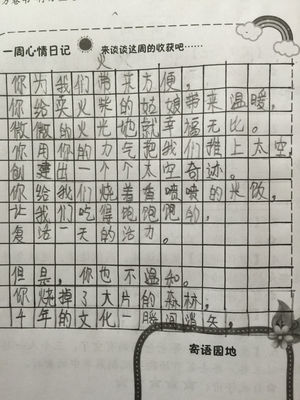 一周心情日记 来谈谈这周的收获吧……
火
你为我们带来方便，
你给卖火柴的姑娘带来温暖，
微微的火光她就幸福无比。
你用你的力气把我们推上太空，
创建出一个个太空奇迹。
你给我们烧着香喷喷的米饭，
让我们吃得饱饱的，
复活一天的活力。
但是，你也不温和。
你烧掉了大片的森林，
千年的文化一瞬间消失。
寄语园地